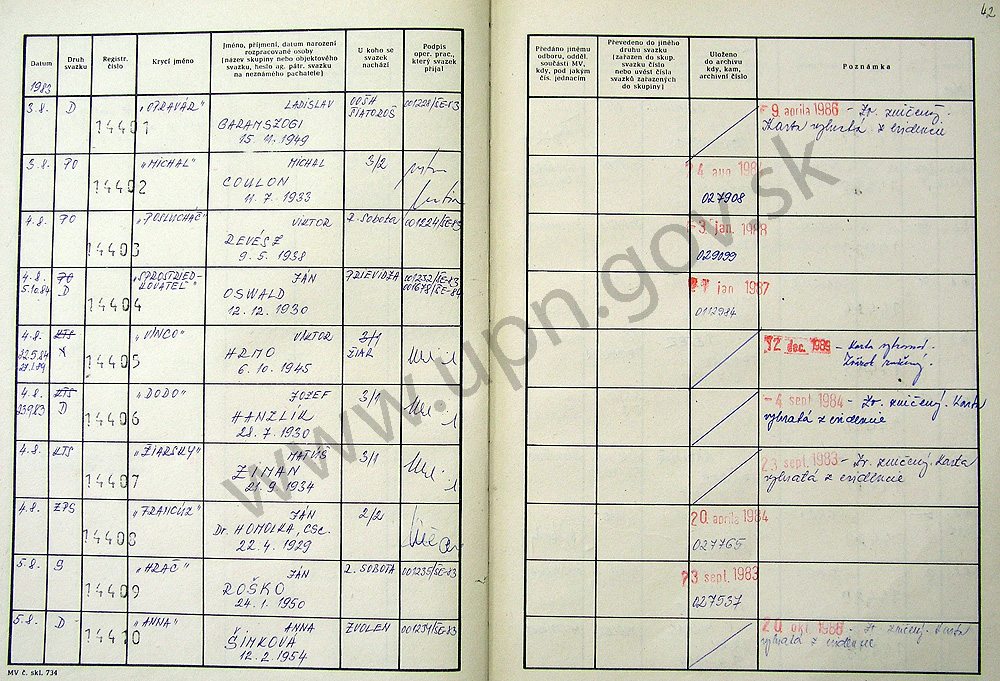 42
Datum
1983
Druh svazku
Registr. číslo
Krycí jméno
Jméno, příjmení, datum narození
rozpracované osoby
(název skupiny nebo objektového
svazku, heslo ag. pátr. svazku
na neznámého pachatele)
U koho se
svazek
nachází
Podpis
oper. prac.,
který svazek
přijal
Předáno jinému
odboru, odděl.
součásti MV,
kdy, pod jakým
čís. jednacím
Převedeno do jiného
druhu svazku
(zařazen do skup.
svazku číslo
nebo uvést čísla
svazků zařazených
do skupiny)
Uloženo
do archivu
kdy, kam,
archivní číslo
Poznámka
3.8. D 14401 "OPRAVÁR" LADISLAV
BARAMSZOGI
15. 11. 1949
OOŠH
ŠIATOROŠ
001228/ŠE-83
- 9. aprila 1986 - Zv. zničený.
Karta vybratá z evidencie
3.8. PO 14402 "MICHAL" MICHAL
COULON
11. 7. 1933
3/2
027908
4.8. PO 14403 "POSLUCHÁČ" VIKTOR
REVÉSZ
9. 5. 1938
R. Sobota
001224/ŠE-83
- 3. jan. 1988
029099
4.8. PO
5.10.84 D
14404 "SPROSTRIED-
KOVATEĽ" JÁN
OSWALD
12. 12. 1930
PRIEVIDZA
001232/ŠE-83
001678/ŠE-84
jan 1987
0112984
4.8. KTS
22.5.84
14405 "VINCO" VIKTOR
HRMO
6. 10. 1945
3/1
ŽIAR
12. dec. 1989 - Karta vyhranol.
Zväzok zničený.
4.8. KTS
23.9.83 D
14406 "DODO" JOZEF
HANZLÍK
28. 7. 1930
3/1
- 4. sept. 1984 - Zv. zničený. Karta
vybratá z evidencie
4.8. KTS 14407 "ŽIARSKY" MATÚŠ
ZIMAN
21. 9. 1934
3/1
23. sept. 1983 - Zv. zničený. Karta
vybratá z evidencie
4.8. ZPS 14408 "FRANCÚZ" JÁN
Dr. HOMOLKA, CSc.
22. 4. 1929
2/2
20. aprila 1984
027765
5.8. S 14409 "HRÁČ" JÁN
ROŠKO
24. 1. 1950
R. SOBOTA
001235/ŠE-83
23 sept. 1983
027537
5.8. D 14410 "ANNA" ANNA
ŠIMKOVÁ
12. 2. 1954
ZVOLEN
001234/ŠE-83
20. okt. 1988 - Zv. zničený. Karta
vybratá z evidencie
MV č. skl. 734
www.upn.gov.sk